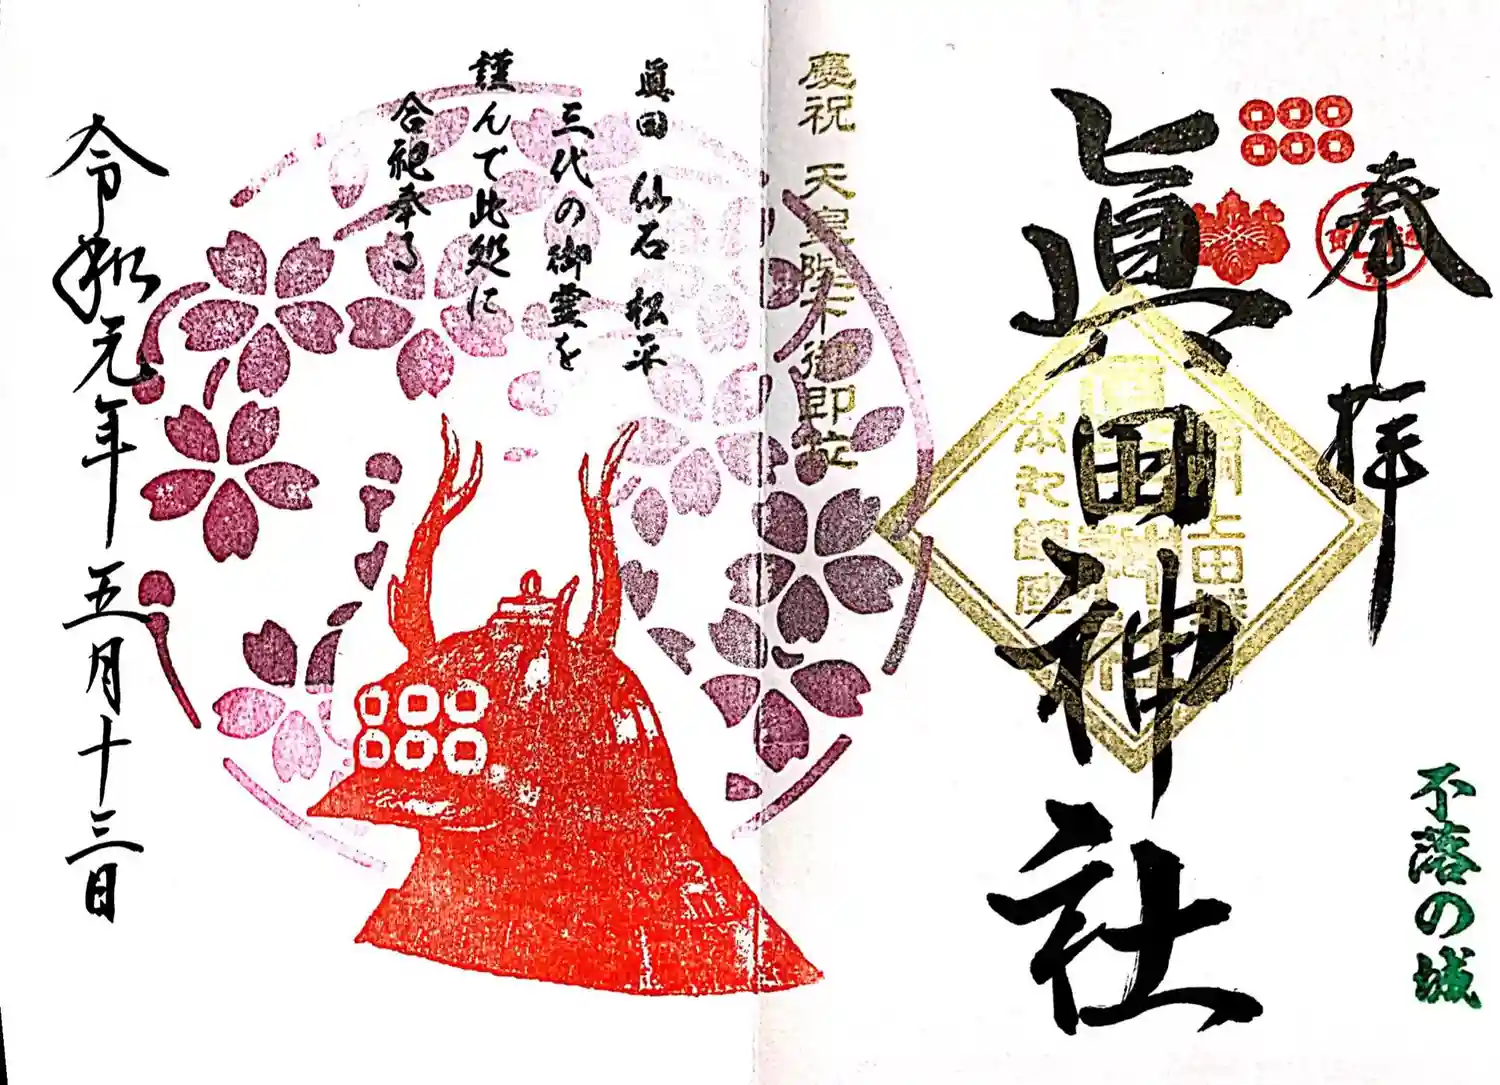 奉拝
眞田神社
不落の城
上田城
本丸鎮座
慶祝 天皇陛下御即位
眞田 仙石 松平
三代の御霊を
謹んで此処に
合祀奉る
令和元年五月十三日